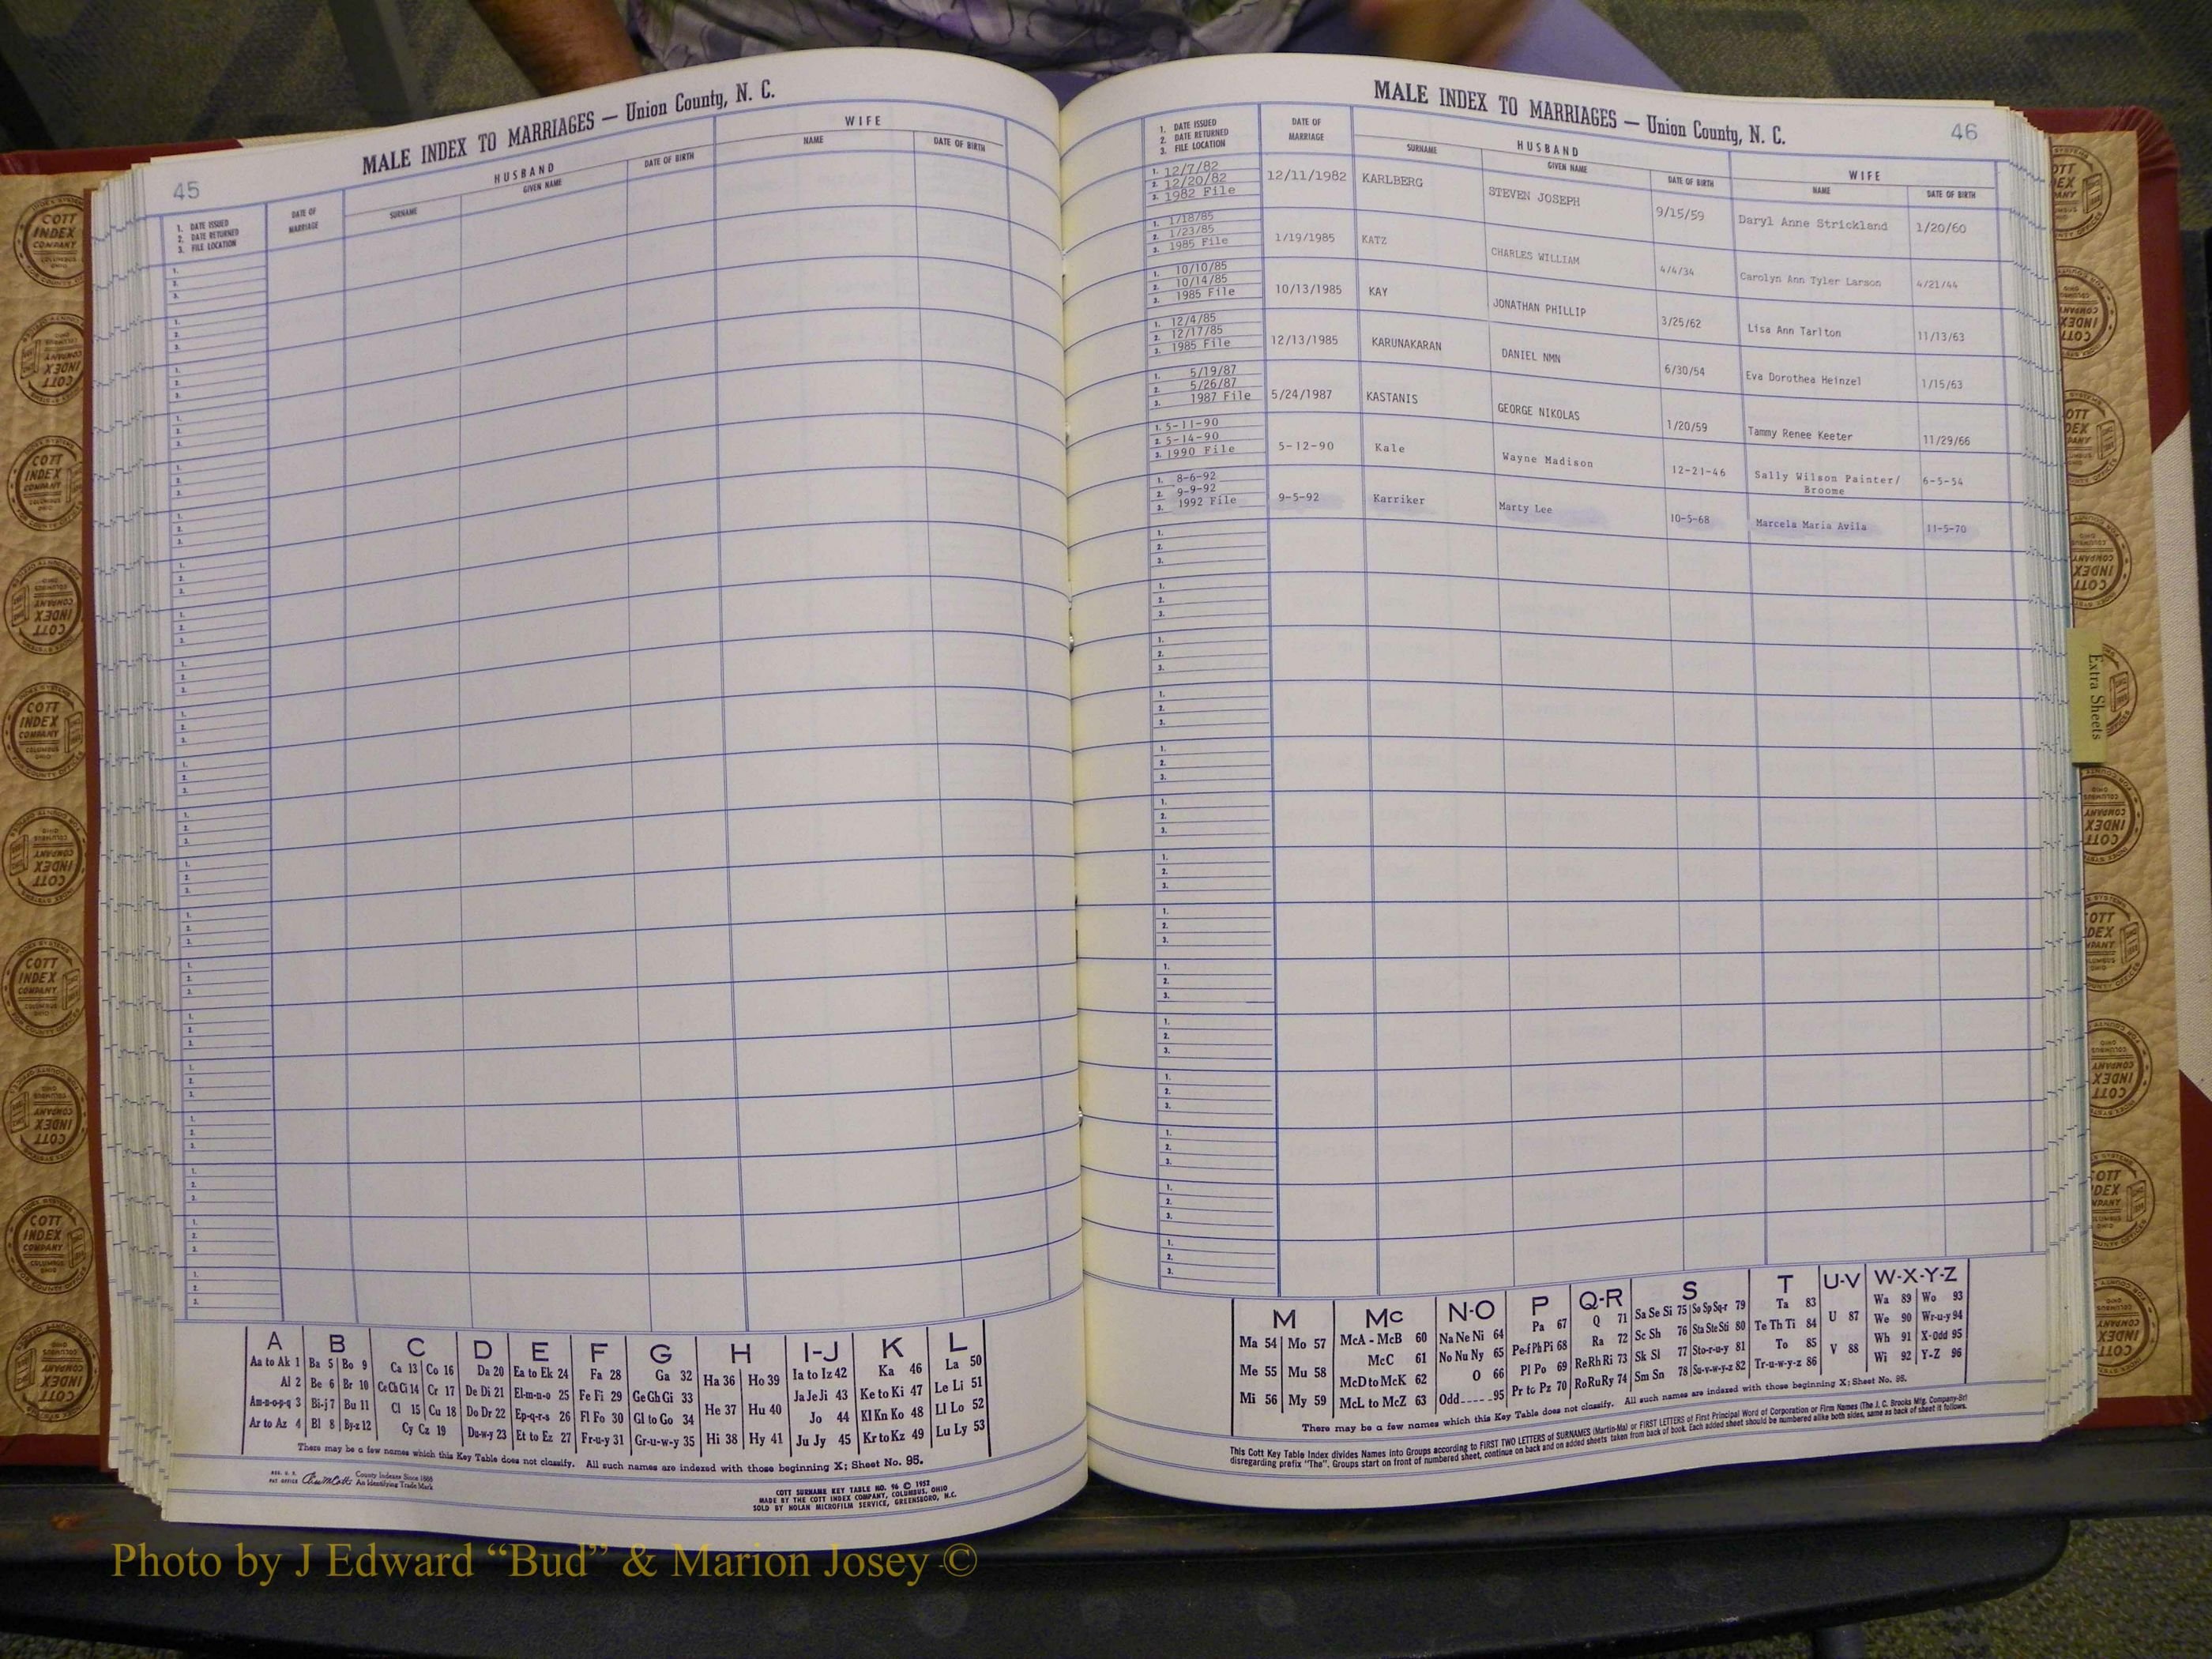 MALE INDEX TO MARRIAGES — Union County, N. C.
45
1. DATE ISSUED
2. DATE RETURNED
3. FILE LOCATION
DATE OF MARRIAGE
HUSBAND
SURNAME GIVEN NAME DATE OF BIRTH
WIFE
NAME DATE OF BIRTH
A B C D E F G H I-J K L
Aa to Ak 1 Ba 5 Bo 9 Ca 13 Co 16 Da 20 Ea to Ek 24 Fa 28 Ga 32 Ha 36 Ho 39 Ia to Iz 42 Ka 46 La 50
Al 2 Be 6 Br 10 Ce Ch Ci 14 Cr 17 De Di 21 El-m-n-o 25 Fe Fi 29 Ge Gh Gi 33 He 37 Hu 40 Ja Je Ji 43 Ke to Ki 47 Le Li 51
Am-n-o-p-q 3 Bi-j 7 Bu 11 Cl 15 Cu 18 Do Dr 22 Ep-q-r-s 26 Fl Fo 30 Gl to Go 34 Hi 38 Hy 41 Jo 44 Kl Kn Ko 48 Ll Lo 52
Ar to Az 4 Bl 8 By-z 12 Cy Cz 19 Du-w-y 23 Et to Ez 27 Fr-u-y 31 Gr-u-w-y 35 Ju Jy 45 Kr to Kz 49 Lu Ly 53
There may be a few names which this Key Table does not classify. All such names are indexed with those beginning X; Sheet No. 95.
REG. U. S. PAT OFFICE
County Indexes Since 1888
An Identifying Trade Mark
COTT SURNAME KEY TABLE NO. 96 © 1952
MADE BY THE COTT INDEX COMPANY, COLUMBUS, OHIO
SOLD BY NOLAN MICROFILM SERVICE, GREENSBORO, N.C.
MALE INDEX TO MARRIAGES — Union County, N. C.
46
1. DATE ISSUED
2. DATE RETURNED
3. FILE LOCATION
DATE OF MARRIAGE
HUSBAND
SURNAME GIVEN NAME DATE OF BIRTH
WIFE
NAME DATE OF BIRTH
1. 12/7/82
2. 12/20/82
3. 1982 File
12/11/1982 KARLBERG STEVEN JOSEPH 9/15/59 Daryl Anne Strickland 1/20/60
1. 1/18/85
2. 1/23/85
3. 1985 File
1/19/1985 KATZ CHARLES WILLIAM 4/4/34 Carolyn Ann Tyler Larson 4/21/44
1. 10/10/85
2. 10/14/85
3. 1985 File
10/13/1985 KAY JONATHAN PHILLIP 3/25/62 Lisa Ann Tarlton 11/13/63
1. 12/4/85
2. 12/17/85
3. 1985 File
12/13/1985 KARUNAKARAN DANIEL NMN 6/30/54 Eva Dorothea Heinzel 1/15/63
1. 5/19/87
2. 5/26/87
3. 1987 File
5/24/1987 KASTANIS GEORGE NIKOLAS 1/20/59 Tammy Renee Keeter 11/29/66
1. 5-11-90
2. 5-14-90
3. 1990 File
5-12-90 Kale Wayne Madison 12-21-46 Sally Wilson Painter/ 6-5-54
Broome
1. 8-6-92
2. 9-9-92
3. 1992 File
9-5-92 Karriker Marty Lee 10-5-68 Marcela Maria Avila 11-5-70
Extra Sheets
M Mc N-O P Q-R S T U-V W-X-Y-Z
Ma 54 Mo 57 McA - McB 60 Na Ne Ni 64 Pa 67 Q 71 Sa Se Si 75 So Sp Sq-r 79 Ta 83 U 87 Wa 89 Wo 93
Me 55 Mu 58 McC 61 No Nu Ny 65 Pe-f Ph Pi 68 Ra 72 Sc Sh 76 Sta Ste Sti 80 Te Th Ti 84 V 88 We 90 Wr-u-y 94
Mi 56 My 59 McD to McK 62 O 66 Pl Po 69 Re Rh Ri 73 Sk Sl 77 Sto-r-u-y 81 To 85 Wh 91 X-Odd 95
McL to McZ 63 Odd 95 Pr to Pz 70 Ro Ru Ry 74 Sm Sn 78 Su-v-w-y-z 82 Tr-u-w-y-z 86 Wi 92 Y-Z 96
There may be a few names which this Key Table does not classify. All such names are indexed with those beginning X; Sheet No. 95.
This Cott Key Table Index divides Names into Groups according to FIRST TWO LETTERS of SURNAMES (Martin-Ma) or FIRST LETTERS of First Principal Word of Corporation or Firm Names (The J. C. Brooks Mfg. Company-Br)
disregarding prefix "The". Groups start on front of numbered sheet, continue on back and on added sheets taken from back of book. Each added sheet should be numbered alike both sides, same as back of sheet it follows.
COTT INDEX COMPANY
COLUMBUS OHIO
FOR COUNTY OFFICES
Photo by J Edward “Bud” & Marion Josey ©